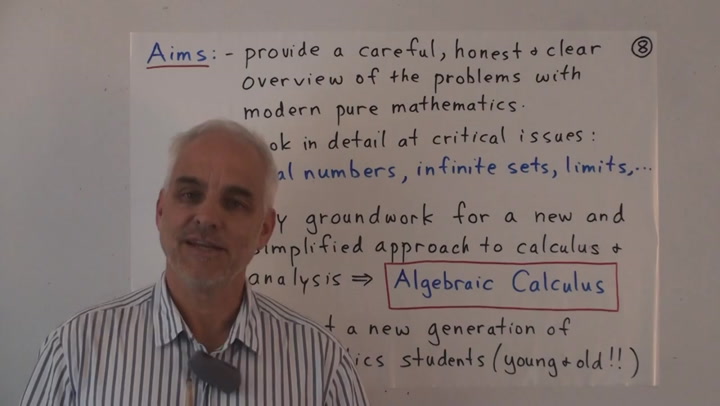 Aims: - provide a careful, honest & clear ⑧
overview of the problems with
modern pure mathematics.
ok in detail at critical issues:
al numbers, infinite sets, limits,...
y groundwork for a new and
implified approach to calculus &
analysis ⇒ Algebraic Calculus
t a new generation of
ics students (young & old!!)